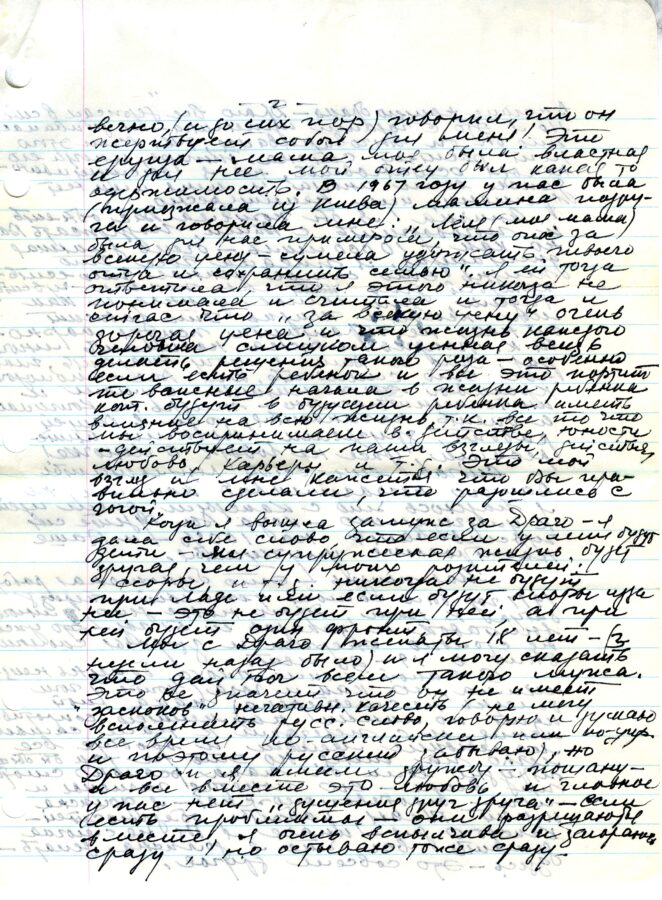 - 2 -
вечно, (и до сих пор) говорил, что он
жертвует собой для меня! Это
ерунда — мама моя была властная
и для нее мой отец был какая то
одержимость. В 1967 году у нас была
(приезжала из Киева) мамина подру-
га и говорила мне: „Лёля (моя мама)
была для нас примером, что она за
всякую цену — сумела удержать твоего
отца и сохранить семью". Я ей тогда
ответила что я этого никогда не
понимала и считала и тогда и
сейчас что „за всякую цену" очень
дорогая цена и что жизнь каждого
человека слишком ценная вещь
делать решения такого рода — особенно
если есть ребёнок и все это портит
те важные начала в жизни ребенка
кот. будут в будущем ребенка иметь
влияние на всю жизнь, т.к. все то что
мы воспринимаем в детстве, юности
- действует на наши взгляды, действия,
любовь, карьеры и т.д. Это мой
взгляд и мне кажется что Вы пра-
вильно сделали, что разошлись с
Когда я вышла замуж за Драго — я
дала себе слово что если у меня будут
дети — моя супружеская жизнь будет
другая, чем у моих родителей!
Ссоры, и т.д. никогда не будут
при Ладе и если будут споры из за
неё — это не будет при ней, а при
ней будет один фронт.
Мы с Драго женаты 18 лет — (2
недели назад было) и я могу сказать
что дай Бог всем такого мужа.
Это не значит что он не имеет
негативн. качеств (не могу
вспомнить русс. слово, говорю и думаю
все время по английски или
и поэтому русский забываю), но
Драго и я имеем дружбу —
и все вместе это любовь и главное
у нас нет „душения друг друга" — если
есть проблемы — они разрешаются
вместе. Я очень вспыльчива и загораюсь
сразу, но остываю тоже сразу.